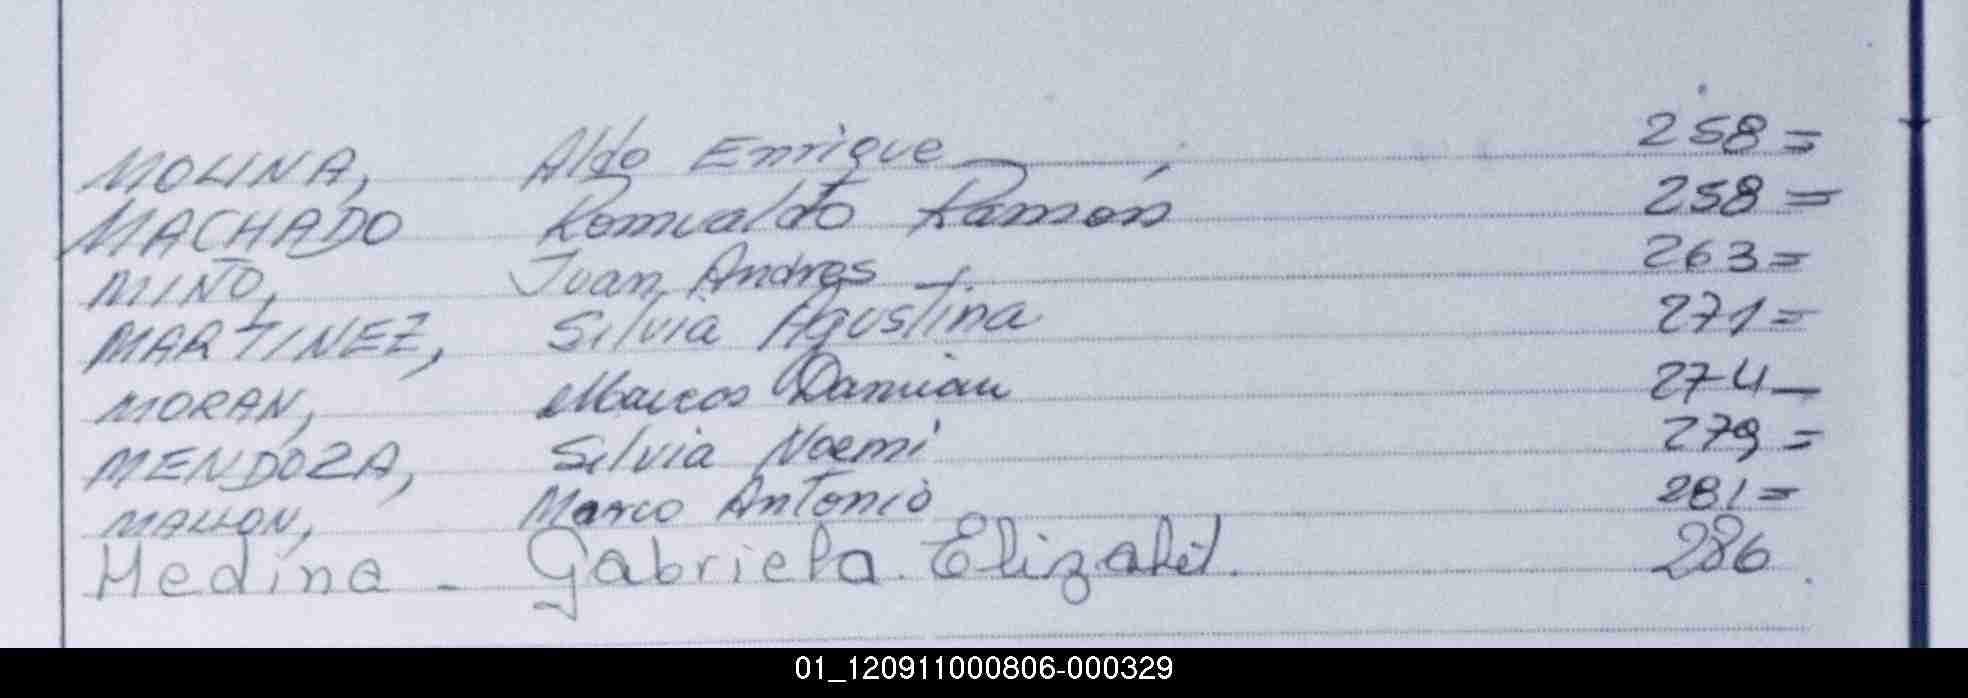 MOLINA, Aldo Enrique 258=
MACHADO Romualdo Ramón 258=
MIÑO, Juan Andres 263=
MARTINEZ, Silvia Agustina 271=
MORAN, Marcos Damian 274_
MENDOZA, Silvia Noemí 279=
MALLON, Marco Antonio 281=
Medina - Gabriela. Elizabet. 286.
01_120911000806-000329